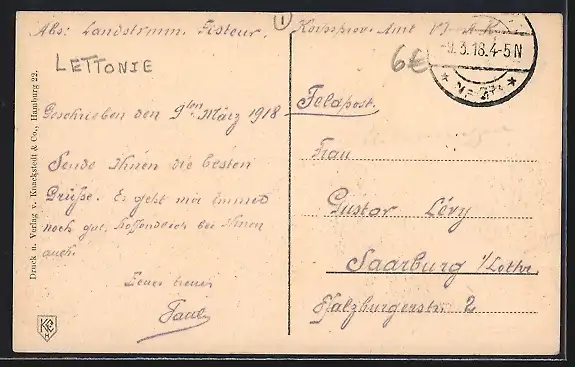 Abs: Landstrmm. Festeur. Korpsprov. Amt VI. A.K.
1
LETTONIE
6€
-9.3.18.4-5N
Geschrieben den 9ten März 1918
Feldpost.
Sende Ihnen die besten
Grüße. Es geht mir immer
noch gut, hoffendlich bei Ihnen
auch.
Euer treuer
Paul
Frau
Gustav Lévy
Saarburg i/Lothr.
Pfalzburgerstr. 2
Druck u. Verlag v. Konckstedt & Co., Hamburg 22.